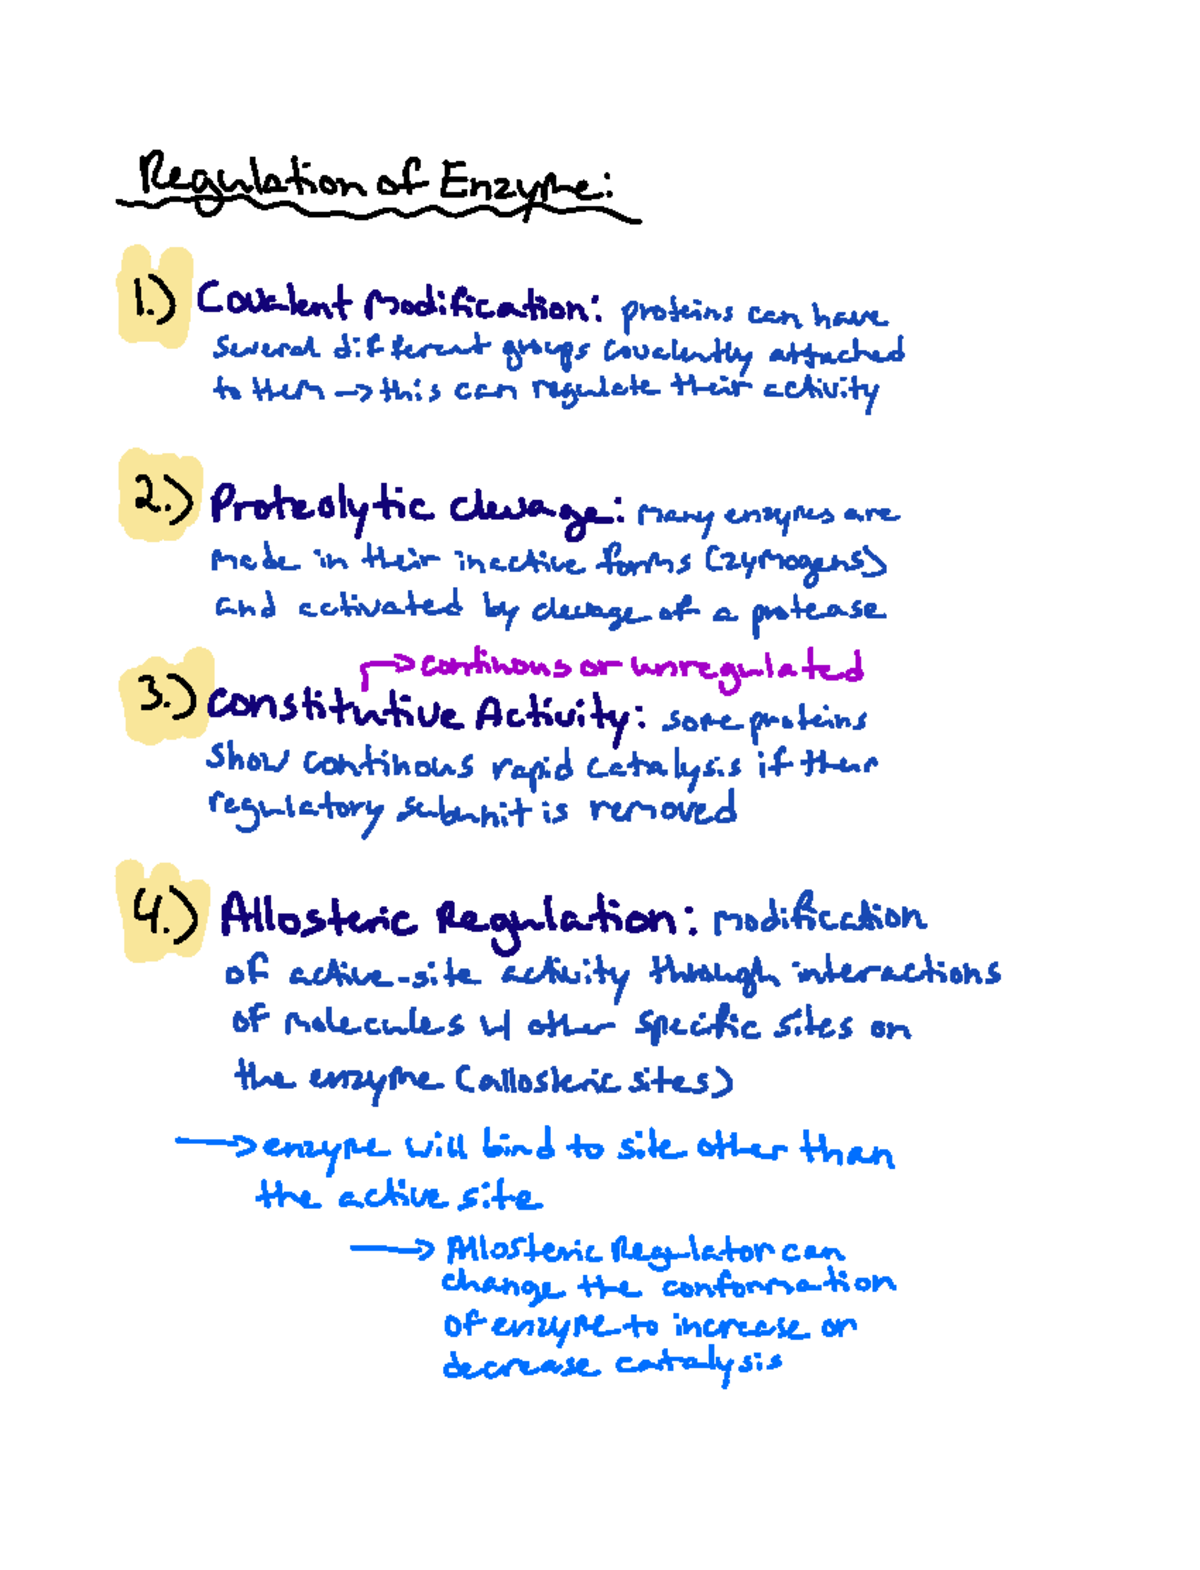 Regulation of Enzyme:
1.) Covalent Modification: proteins can have
several different groups covalently attached
to them → this can regulate their activity
2.) Proteolytic clevage: many enzymes are
made in their inactive forms (zymogens)
and activated by clevage of a protease
→ continous or unregulated
3.) constitutive Activity: some proteins
show continous rapid catalysis if their
regulatory subunit is removed
4.) Allosteric Regulation: modification
of active-site activity through interactions
of molecules w/ other specific sites on
the enzyme (allosteric sites)
→ enzyme will bind to site other than
the active site
→ Allosteric Regulator can
change the conformation
of enzyme to increase or
decrease catalysis